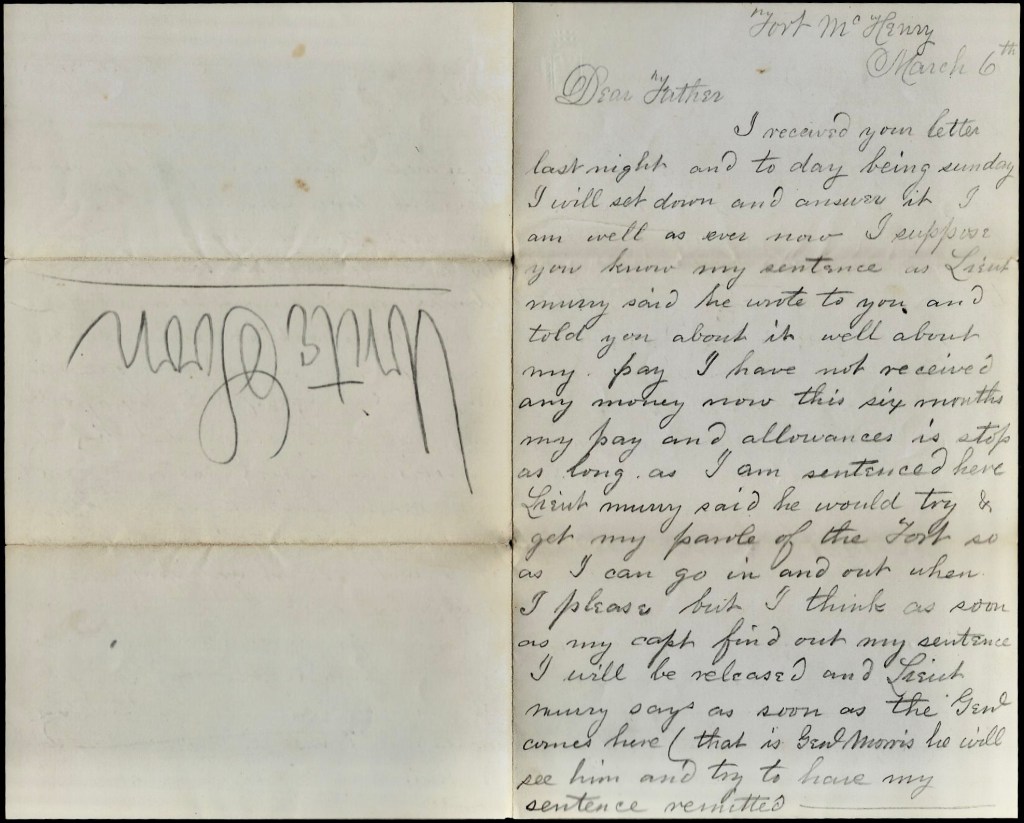 Fort Mc Henry
March 6th
Dear Father
I received your letter
last night and to day being sunday
I will set down and answer it I
am well as ever now I suppose
you know my sentence as Lieut
murry said he wrote to you and
told you about it well about
my pay I have not received
any money now this six months
my pay and allowances is stop
as long as I am sentenced here
Lieut murry said he would try &
get my parole of the Fort so
as I can go in and out when
I please but I think as soon
as my capt find out my sentence
I will be released and Lieut
murry says as soon as the Genl
comes here ( that is Genl Morris he will
see him and try to have my
sentence remitted